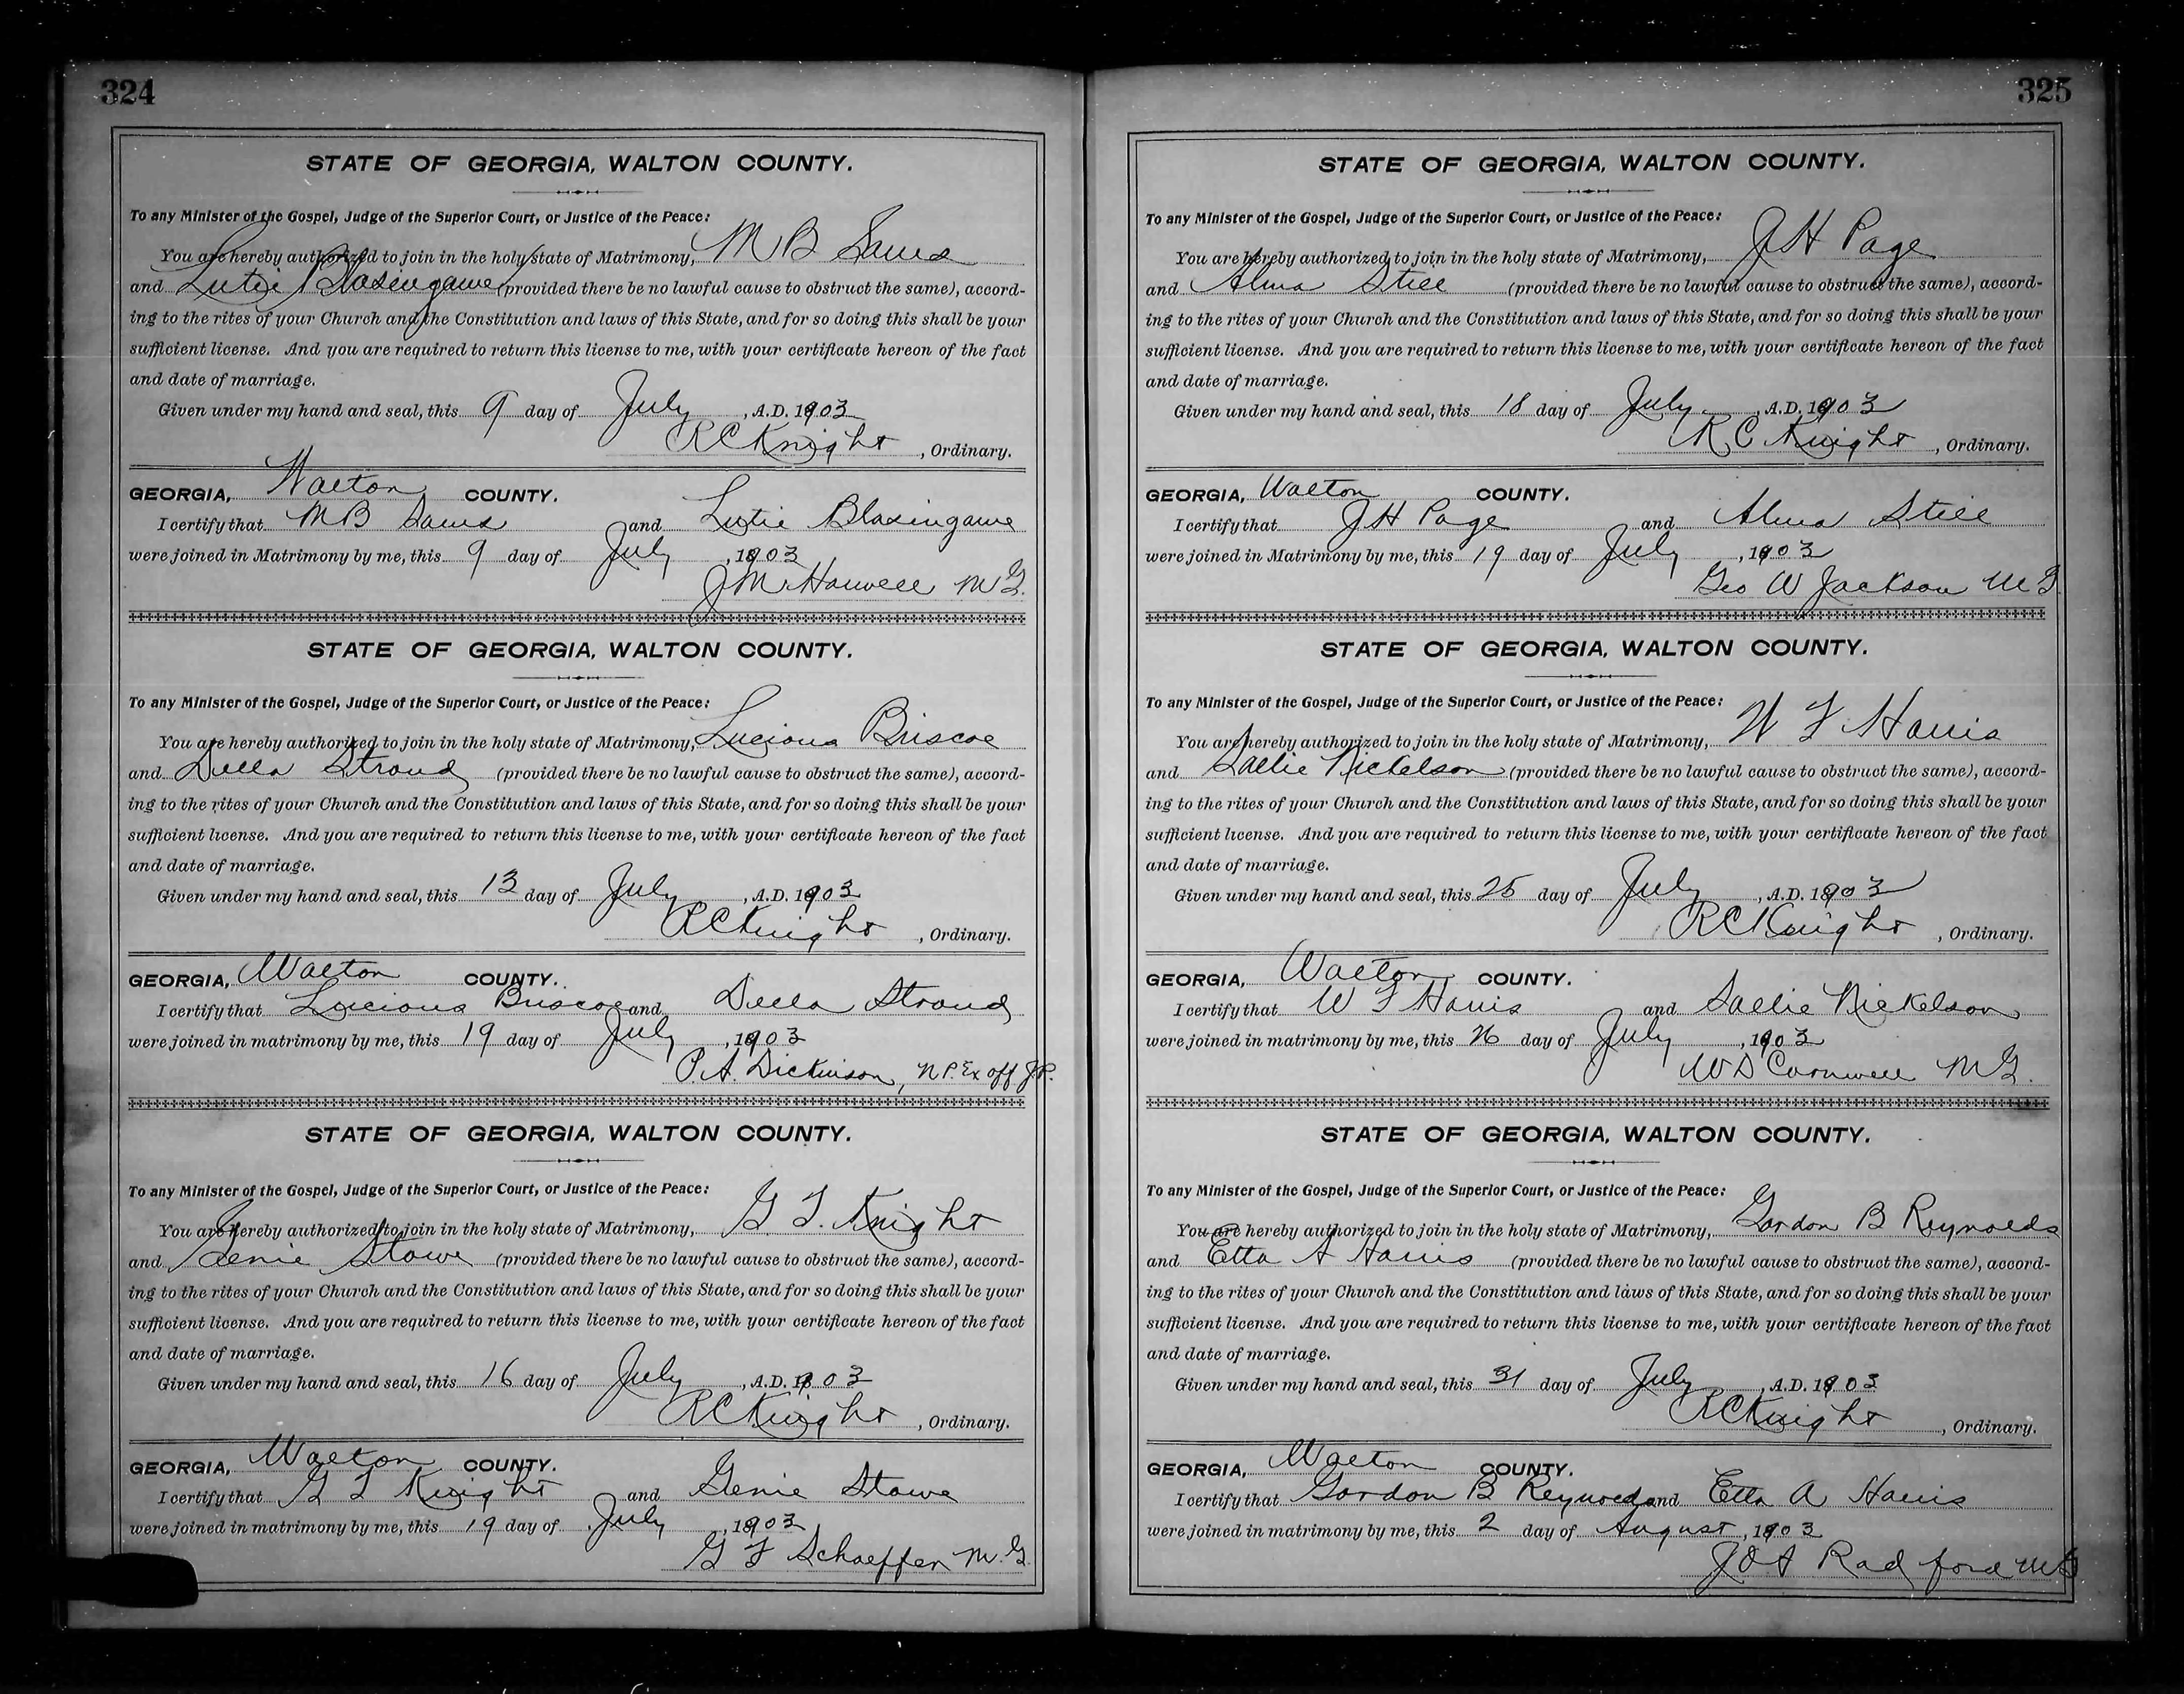 324
STATE OF GEORGIA, WALTON COUNTY.
To any Minister of the Gospel, Judge of the Superior Court, or Justice of the Peace:
You are hereby authorized to join in the holy state of Matrimony, M B Sams
and Lutie Blasingame (provided there be no lawful cause to obstruct the same), accord-
ing to the rites of your Church and the Constitution and laws of this State, and for so doing this shall be your
sufficient license. And you are required to return this license to me, with your certificate hereon of the fact
and date of marriage.
Given under my hand and seal, this 9 day of July, A.D. 1903
R C Knight, Ordinary.
GEORGIA, Walton COUNTY.
I certify that M B Sams and Lutie Blasingame
were joined in Matrimony by me, this 9 day of July, 1903
J M Harwell M G.
STATE OF GEORGIA, WALTON COUNTY.
To any Minister of the Gospel, Judge of the Superior Court, or Justice of the Peace:
You are hereby authorized to join in the holy state of Matrimony, Lucious Briscoe
and Della Stroud (provided there be no lawful cause to obstruct the same), accord-
ing to the rites of your Church and the Constitution and laws of this State, and for so doing this shall be your
sufficient license. And you are required to return this license to me, with your certificate hereon of the fact
and date of marriage.
Given under my hand and seal, this 13 day of July, A.D. 1903
R C Knight, Ordinary.
GEORGIA, Walton COUNTY.
I certify that Lucious Briscoe and Della Stroud
were joined in matrimony by me, this 19 day of July, 1903
P. A. Dickinson, N P. Ex off J P.
STATE OF GEORGIA, WALTON COUNTY.
To any Minister of the Gospel, Judge of the Superior Court, or Justice of the Peace:
You are hereby authorized to join in the holy state of Matrimony, G T. Knight
and Genie Stowe (provided there be no lawful cause to obstruct the same), accord-
ing to the rites of your Church and the Constitution and laws of this State, and for so doing this shall be your
sufficient license. And you are required to return this license to me, with your certificate hereon of the fact
and date of marriage.
Given under my hand and seal, this 16 day of July, A.D. 1903
R C Knight, Ordinary.
GEORGIA, Walton COUNTY.
I certify that G T Knight and Genie Stowe
were joined in matrimony by me, this 19 day of July, 1903
G F Schaeffer M. G.
325
STATE OF GEORGIA, WALTON COUNTY.
To any Minister of the Gospel, Judge of the Superior Court, or Justice of the Peace:
You are hereby authorized to join in the holy state of Matrimony, J H Page
and Alma Still (provided there be no lawful cause to obstruct the same), accord-
ing to the rites of your Church and the Constitution and laws of this State, and for so doing this shall be your
sufficient license. And you are required to return this license to me, with your certificate hereon of the fact
and date of marriage.
Given under my hand and seal, this 18 day of July, A.D. 1903
R C Knight, Ordinary.
GEORGIA, Walton COUNTY.
I certify that J H Page and Alma Still
were joined in Matrimony by me, this 19 day of July, 1903
Geo W Jackson M G
STATE OF GEORGIA, WALTON COUNTY.
To any Minister of the Gospel, Judge of the Superior Court, or Justice of the Peace:
You are hereby authorized to join in the holy state of Matrimony, W F Harris
and Sallie Nickelson (provided there be no lawful cause to obstruct the same), accord-
ing to the rites of your Church and the Constitution and laws of this State, and for so doing this shall be your
sufficient license. And you are required to return this license to me, with your certificate hereon of the fact
and date of marriage.
Given under my hand and seal, this 25 day of July, A.D. 1903
R C Knight, Ordinary.
GEORGIA, Walton COUNTY.
I certify that W F Harris and Sallie Nickelson
were joined in matrimony by me, this 26 day of July, 1903
W D Cornwell M G.
STATE OF GEORGIA, WALTON COUNTY.
To any Minister of the Gospel, Judge of the Superior Court, or Justice of the Peace:
You are hereby authorized to join in the holy state of Matrimony, Gordon B Reynolds
and Etta A Harris (provided there be no lawful cause to obstruct the same), accord-
ing to the rites of your Church and the Constitution and laws of this State, and for so doing this shall be your
sufficient license. And you are required to return this license to me, with your certificate hereon of the fact
and date of marriage.
Given under my hand and seal, this 31 day of July, A.D. 1903
R C Knight, Ordinary.
GEORGIA, Walton COUNTY.
I certify that Gordon B Reynolds and Etta A Harris
were joined in matrimony by me, this 2 day of August, 1903
J O A Radford M G